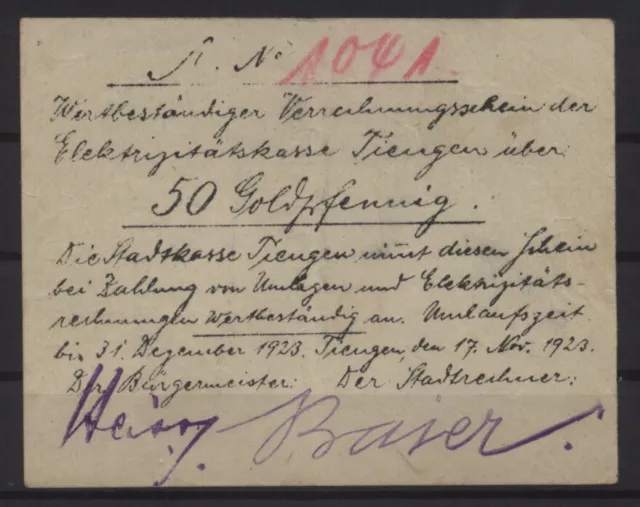 K. No 1041.
Wertbeständiger Verrechnungsschein der
Elektrizitätskasse Tiengen über
50 Goldpfennig.
Die Stadtkasse Tiengen nimt diesen Schein
bei Zahlung von Umlagen und Elektrizitäts-
rechnungen wertbeständig an. Umlaufszeit
bis 31. Dezember 1923. Tiengen, den 17. Nov. 1923.
Der Bürgermeister: Der Stadtrechner:
Baser.